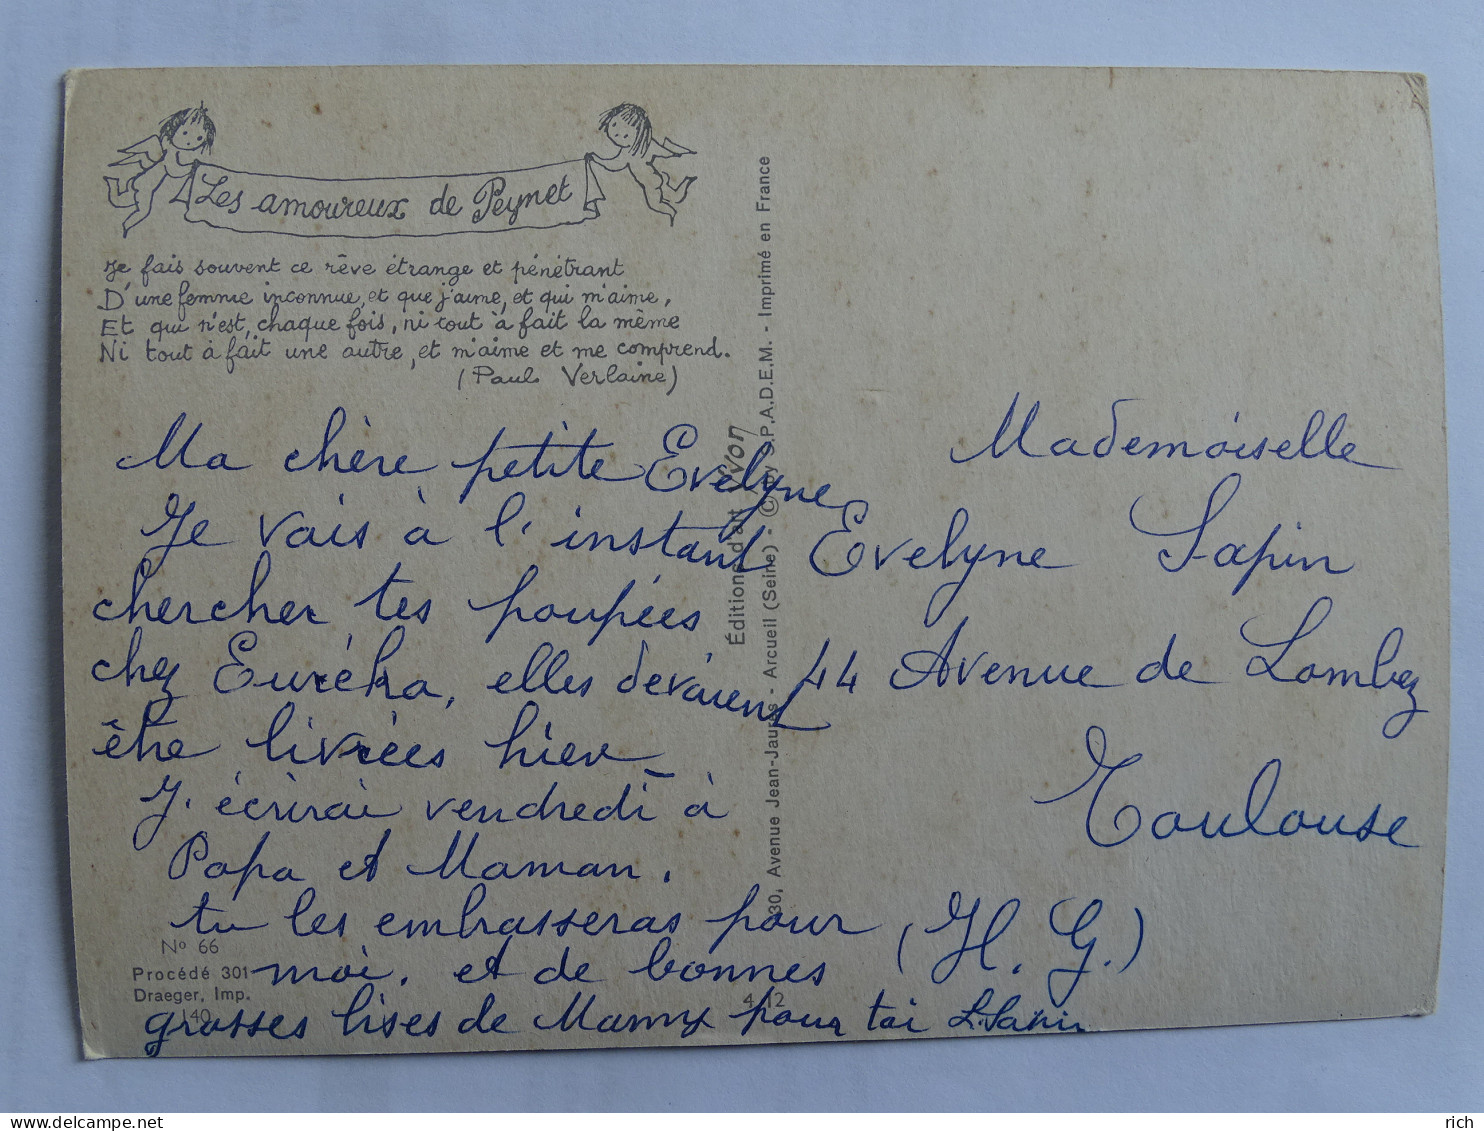 Les amoureux de Peynet
Je fais souvent ce rêve étrange et pénétrant
D'une femme inconnue, et que j'aime, et qui m'aime,
Et qui n'est, chaque fois, ni tout à fait la même
Ni tout à fait une autre, et m'aime et me comprend.
(Paul Verlaine)
Ma chère petite Evelyne
Je vais à l'instant
chercher tes poupées
chez Euréka, elles devaient
être livrées hier
J'écrirai vendredi à
Papa et Maman.
tu les embrasseras pour
moi. et de bonnes
grosses bises de Mamy pour toi
N° 66
Procédé 301
Draeger, Imp.
140
4 12
Éditions d'art Yvon
30, Avenue Jean-Jaurès - Arcueil (Seine) - © by S.P.A.D.E.M. - Imprimé en France
Mademoiselle
Evelyne Sapin
44 Avenue de Lombez
Toulouse
(H. G.)
rich